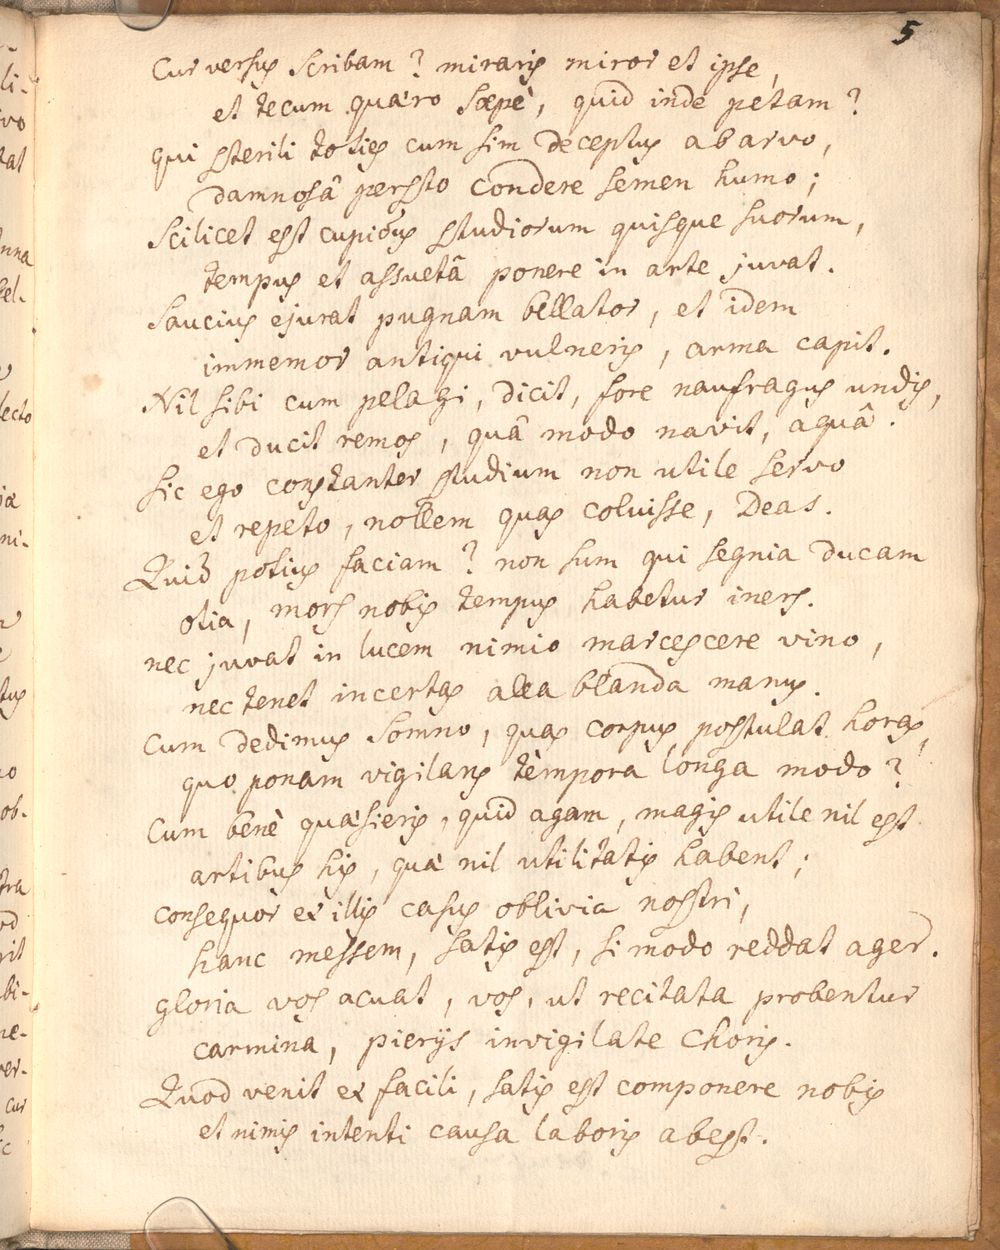 5
Cur versus scribam? miraris miror et ipse,
et tecum quæro sæpè, quid inde petam?
qui sterili toties cum sim deceptus ab arvo,
damnosâ persto condere semen humo;
Scilicet est cupidus studiorum quisque suorum,
tempus et assuetâ ponere in arte juvat.
Saucius ejurat pugnam bellator, et idem
immemor antiqui vulneris, arma capit.
Nil sibi cum pelagi, dicit, fore naufragus undis,
et ducit remos, quâ modo navit, aquâ.
sic ego constanter studium non utile servo
et repeto, nollem quas coluisse, Deas.
Quid potius faciam? non sum qui segnia ducam
otia, mors nobis tempus habetur iners.
nec juvat in lucem nimio marcescere vino,
nec tenet incertas alea blanda manus.
Cum dedimus somno, quas corpus postulat horas,
quo ponam vigilans tempora longa modo?
Cum benè quæsieris, quid agam, magis utile nil est
artibus his, quæ nil utilitatis habent;
consequor ex illis casus oblivia nostri,
hanc messem, satis est, si modo reddat ager.
gloria vos acuat, vos, ut recitata probentur
carmina, pierijs invigilate Choris.
Quod venit ex facili, satis est componere nobis
et nimis intenti causa laboris abest.